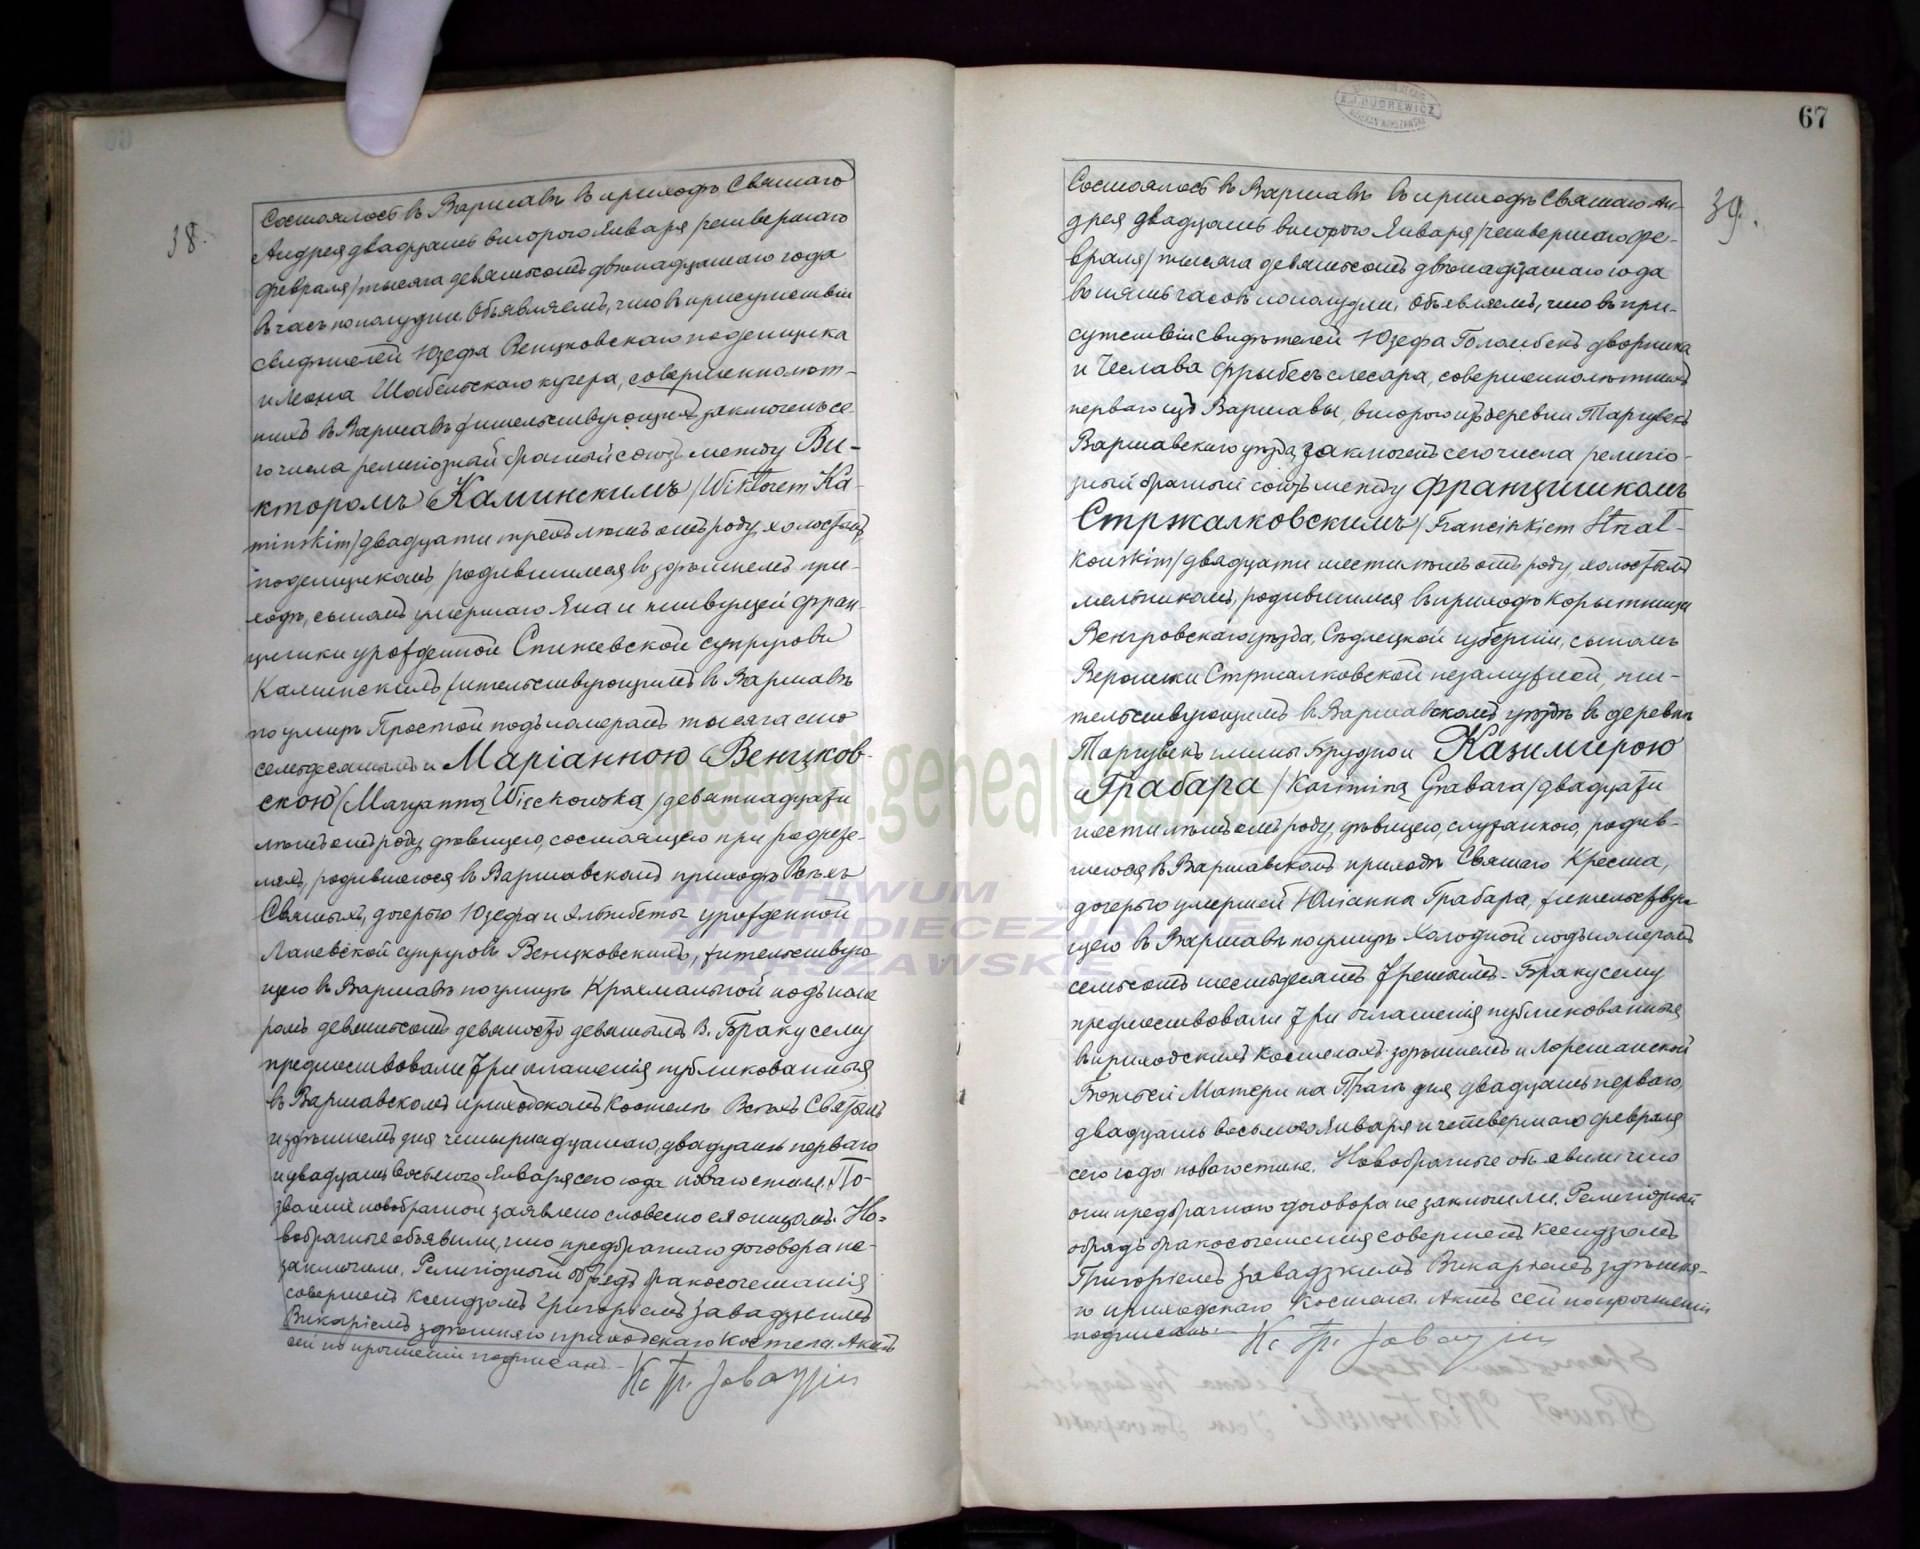 38.
Состоялось въ Варшавѣ въ приходѣ Святаго
Андрея двадцать втораго Января /четвертаго
Февраля/ тысяча девятьсотъ двѣнадцатаго года
въ часъ пополудни. Объявляемъ, что въ присутствіи
свидѣтелей Юзефа Венцковскаго поденщика
и Леона Шабельскаго кучера, совершеннолѣт-
нихъ въ Варшавѣ жительствующихъ, заключенъ се-
го числа религіозный брачный союзъ между Ви-
кторомъ Каминскимъ /Wiktorem Ka-
mińskim/ двадцати трехъ лѣтъ отъ роду, холостымъ,
поденщикомъ, родившимся въ здѣшнемъ при-
ходѣ, сыномъ умершаго Яна и живущей Фран-
цишки урожденной супруговъ
Каминскихъ, жительствующимъ въ Варшавѣ
по улицѣ Простой подъ номеромъ тысяча сто
семьдесятымъ и Маріанною Венцков-
скою /Maryanną Więckowską/ девятнадцати
лѣтъ отъ роду, дѣвицею, состоящею при родите-
ляхъ, родившеюся въ Варшавскомъ приходѣ Всѣхъ
Святыхъ, дочерью Юзефа и Эльжбеты урожденной
супруговъ Венцковскихъ, жительствую-
щею въ Варшавѣ по улицѣ Крахмальной подъ номе-
ромъ девятьсотъ девяносто девятымъ В. Браку сему
предшествовали три оглашенія публикованныя
въ Варшавскомъ приходскомъ Костелѣ Всѣхъ Святыхъ
и здѣшнемъ дня четырнадцатаго, двадцать перваго
и двадцать восьмого Января сего года новаго стиля. По-
зволеніе новобрачной заявлено словесно ея отцомъ. Но-
вобрачные объявили, что предбрачнаго договора не-
заключили. Религіозный обрядъ бракосочетанія
совершенъ Ксендзомъ Григоріемъ Завадзкимъ
Викаріемъ здѣшняго приходскаго Костела. Актъ
сей по прочтеніи подписанъ.
Кс. Гр. Завадзкій
67
39.
Состоялось въ Варшавѣ въ приходѣ Святаго Ан-
дрея двадцать втораго Января /четвертаго Фе-
враля/ тысяча девятьсотъ двѣнадцатаго года
въ пять часовъ пополудни. Объявляемъ, что въ при-
сутствіи свидѣтелей Юзефа Голомбекъ дворника
и Чеслава Фрыбесъ слесаря, совершеннолѣтнихъ
перваго изъ Варшавы, втораго изъ деревни Таргувекъ
Варшавскаго уѣзда, заключенъ сего числа религіо-
зный брачный союзъ между Францишкомъ
Стржалковскимъ /Franciszkiem Strzał-
kowskim/ двадцати шести лѣтъ отъ роду, холостымъ
мельникомъ, родившимся въ приходѣ Корытница
Венгровскаго уѣзда, Сѣдлецкой губерніи, сыномъ
Вероники Стржалковской незамужной, жи-
тельствующимъ въ Варшавскомъ уѣздѣ въ деревнѣ
Таргувекъ гмины Брудно и Казимирою
Грабара /Kazimirą Grabara/ двадцати
шести лѣтъ отъ роду, дѣвицею, служанкою, родив-
шеюся въ Варшавскомъ приходѣ Святаго Креста,
дочерью умершей Юліанны Грабара, жительствую-
щею въ Варшавѣ по улицѣ Холодной подъ номеромъ
семьсотъ шестьдесятъ третьимъ. Браку сему
предшествовали три оглашенія публикованныя
въ приходскихъ Костелахъ: здѣшнемъ и Лоретанской
Божьей Матери на Прагѣ дня двадцать перваго,
двадцать восьмого Января и четвертаго Февраля
сего года новаго стиля. Новобрачные объявили что
они предбрачнаго договора не заключили. Религіозный
обрядъ бракосочетанія совершенъ Ксендзомъ
Григоріемъ Завадзкимъ Викаріемъ здѣшня-
го приходскаго Костела. Актъ сей по прочтеніи
подписанъ.
Кс. Гр. Завадзкій
metryki.genealodzy.pl
ARCHIWUM
ARCHIDIECEZJALNE
WARSZAWSKIE